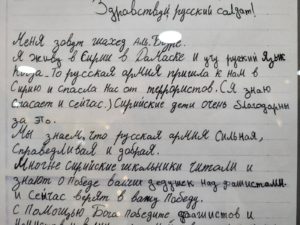 Здравствуй русский солдат!
Меня зовут
Я живу в Сирии в Дамаске и учу русский язык
Когда-то русская армия пришла к нам в
Сирию и спасла нас от террористов. (Я знаю
спасает и сейчас.) Сирийские дети очень благодарны
за это.
Мы знаем, что русская армия сильная,
справедливая и добрая.
Многие Сирийские школьники читали и
знают о Победе ваших дедушек над фашистами
и сейчас верят в вашу Победу.
С помощью Бога победите фашистов и